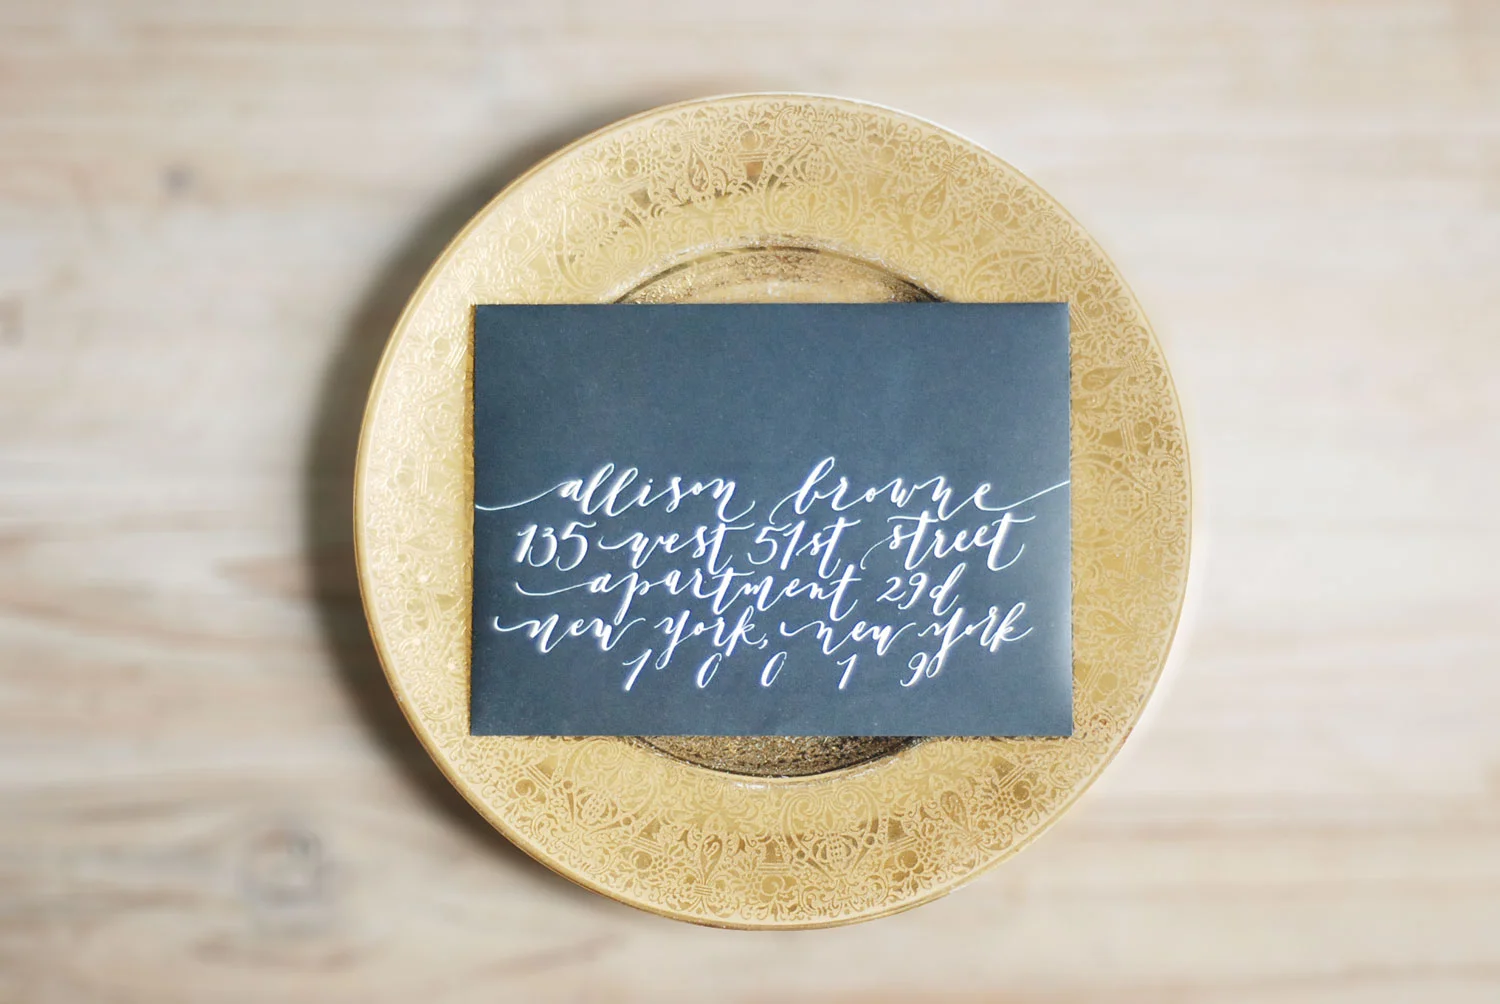 allison browne
135 west 51st street
apartment 29d
new york, new york
1 0 0 1 9